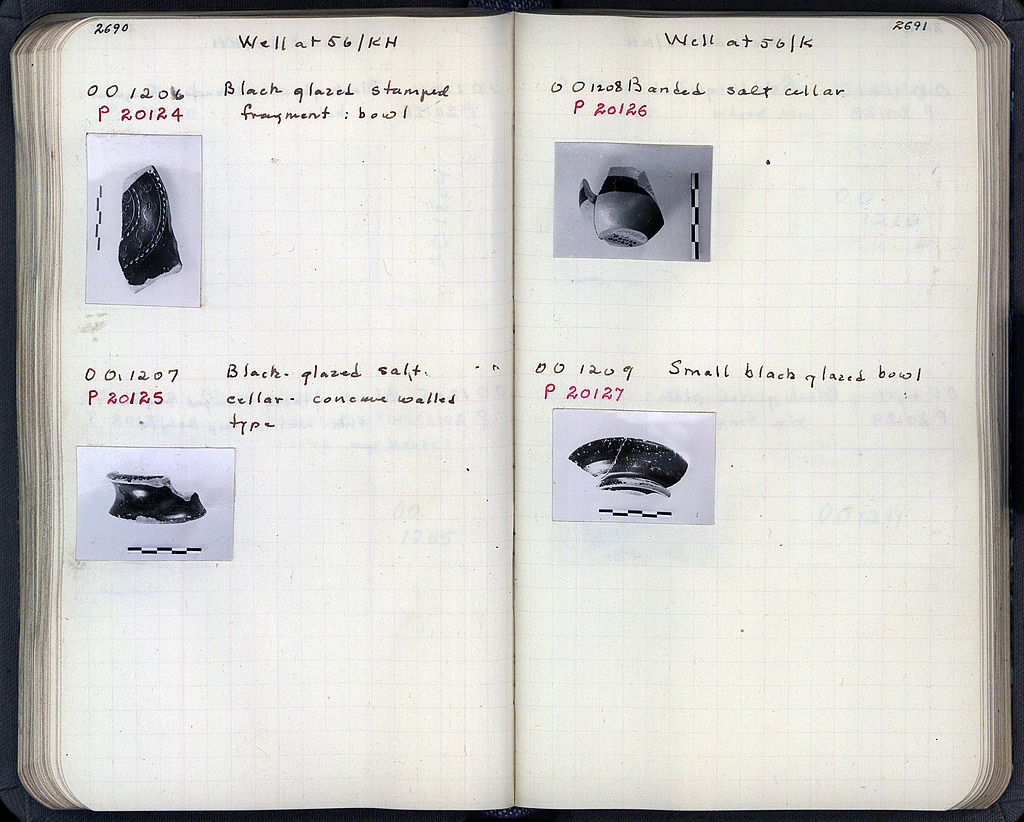 2690
Well at 56/KH
OO 1206 Black glazed stamped
P 20124 fragment : bowl
OO 1207 Black-glazed salt-
P 20125 cellar - concave walled
type
2691
Well at 56/K
OO 1208 Banded salt cellar
P 20126
OO 1209 Small black glazed bowl
P 20127